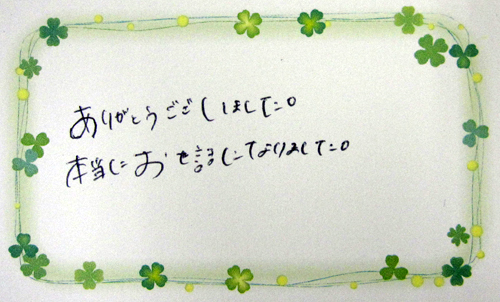 ありがとうございました。
本当にお世話になりました。